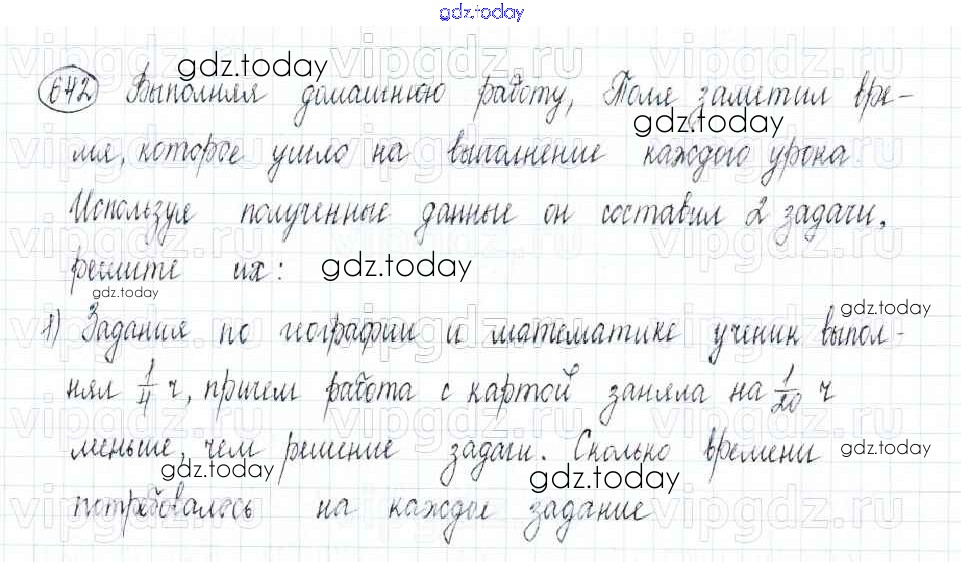 gdz.today
642 Выполняя домашнюю работу, Толя заметил вре-
мя, которое ушло на выполнение каждого урока.
Используя полученные данные он составил 2 задачи,
решите их:
1) Задания по географии и математике ученик выпол-
нял 1/4 ч, причем работа с картой заняла на 1/20 ч
меньше, чем решение задачи. Сколько времени
потребовалось на каждое задание
gdz.today
gdz.today
gdz.today
gdz.today
gdz.today
gdz.today
gdz.today
gdz.today
vipgdz.ru